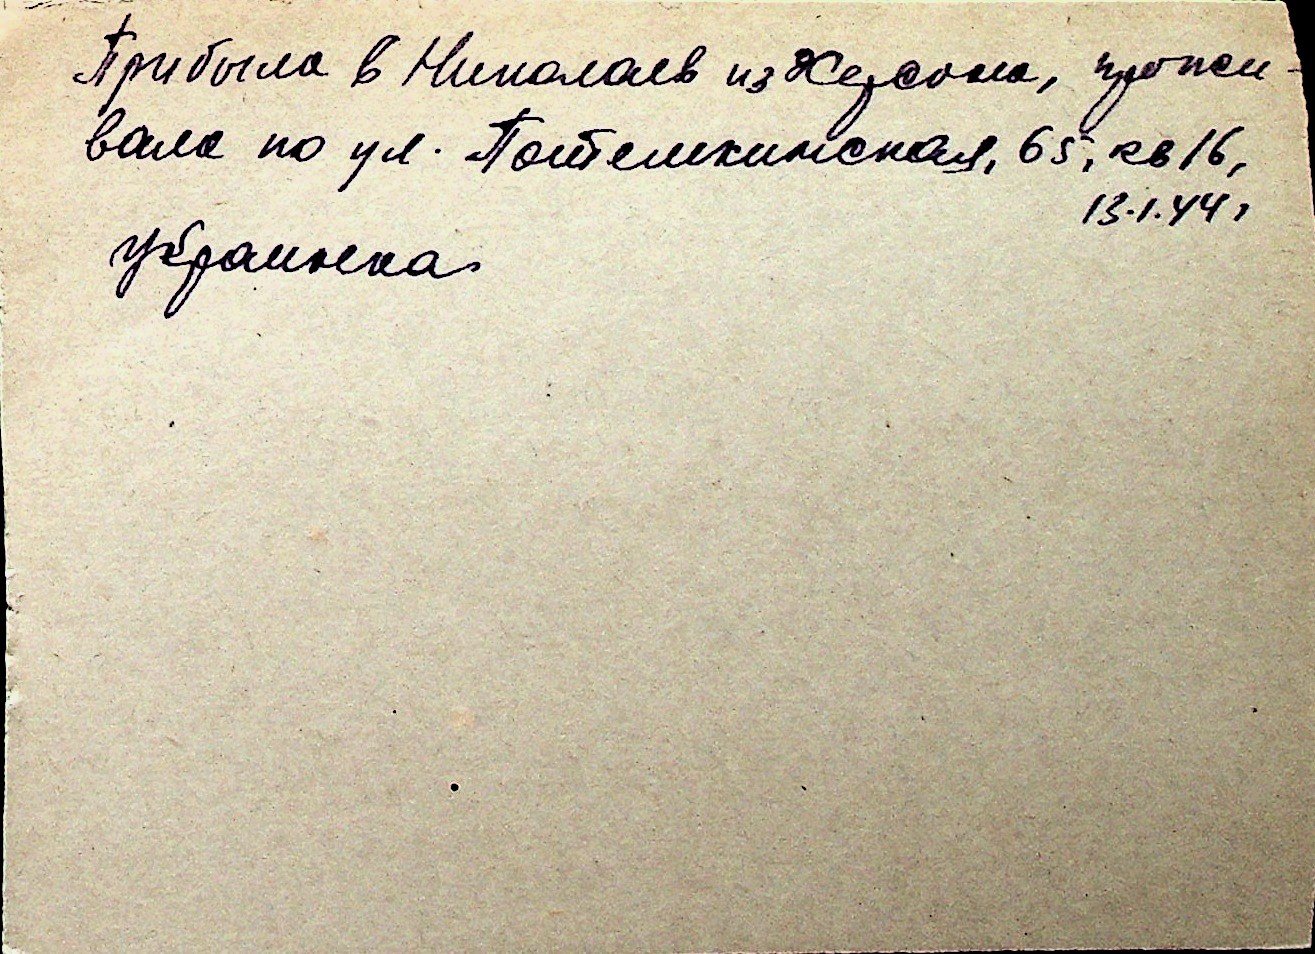 Прибыла в Николаев из Херсона, прожи-
вала по ул. Потемкинская, 65, кв 16,
13.1.44г
украинка.